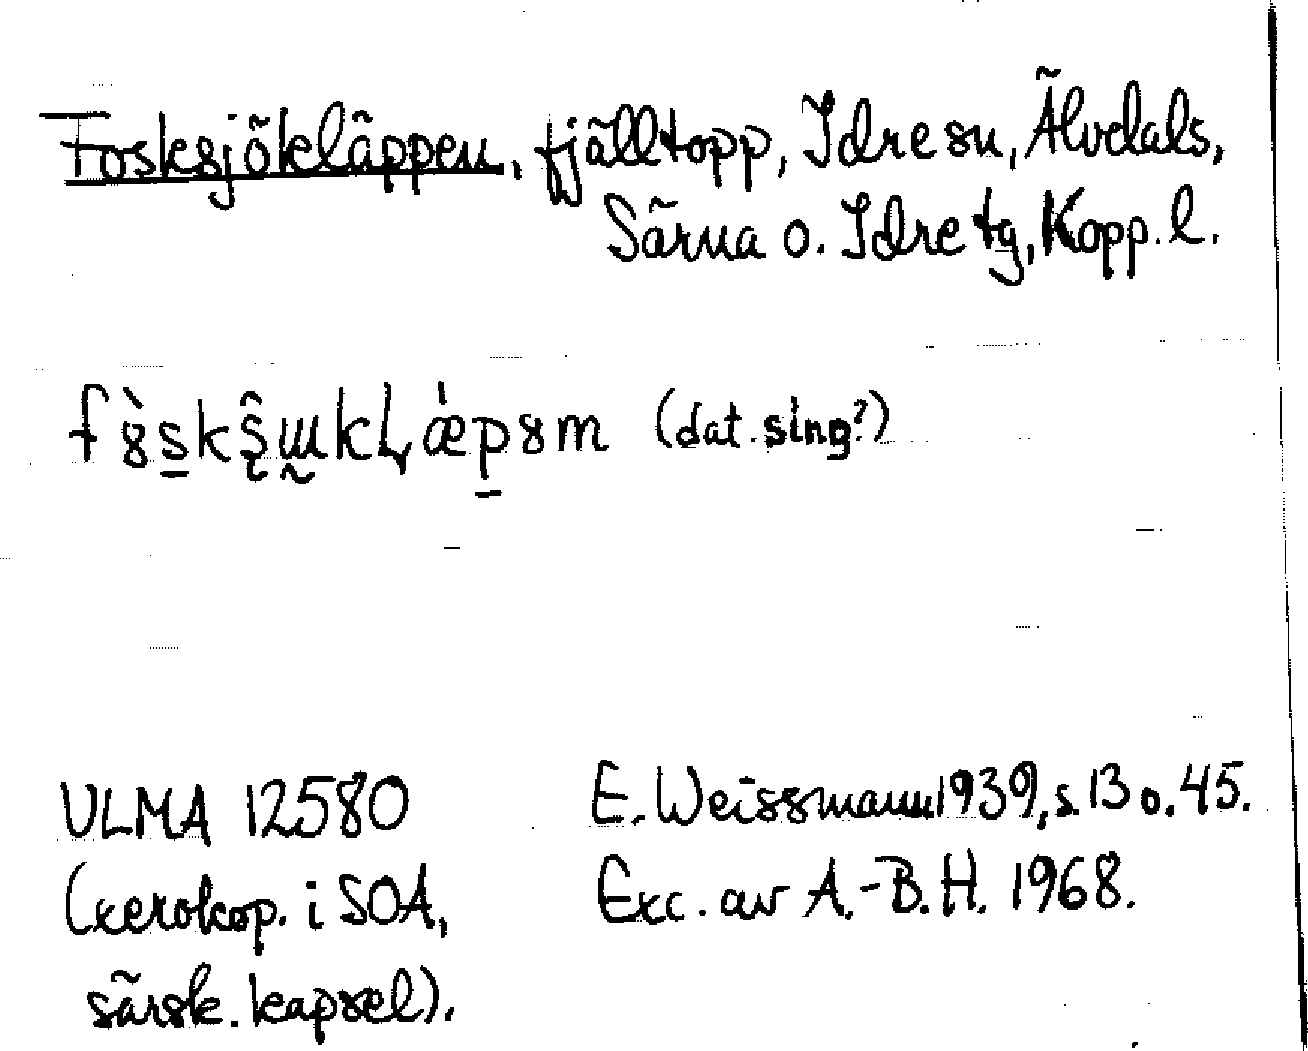 Fosksjökläppen, fjälltopp, Idre sn, Älvdals,
Särna o. Idre tg, Kopp. l.
(dat. sing?)
ULMA 12580
E. Weissmann 1939, s. 13 o. 45.
(xerokop. i SOA,
Exc. av A.-B.H. 1968.
särsk. kapsel).